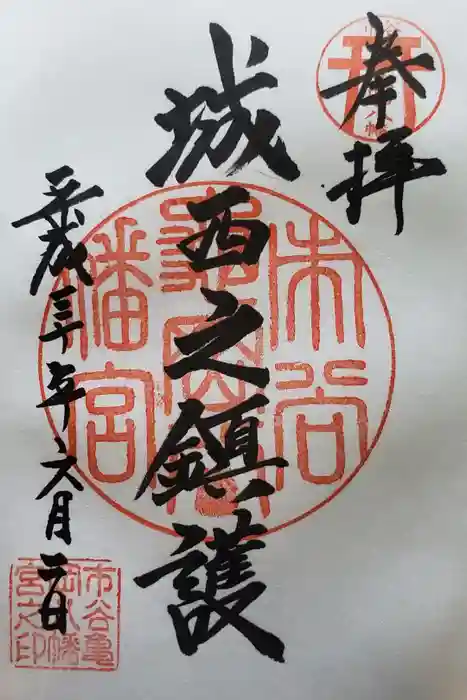 奉拝
城西之鎮護
市谷
亀岡
八幡宮
平成三十年六月二日
市谷亀
岡八幡
宮之印